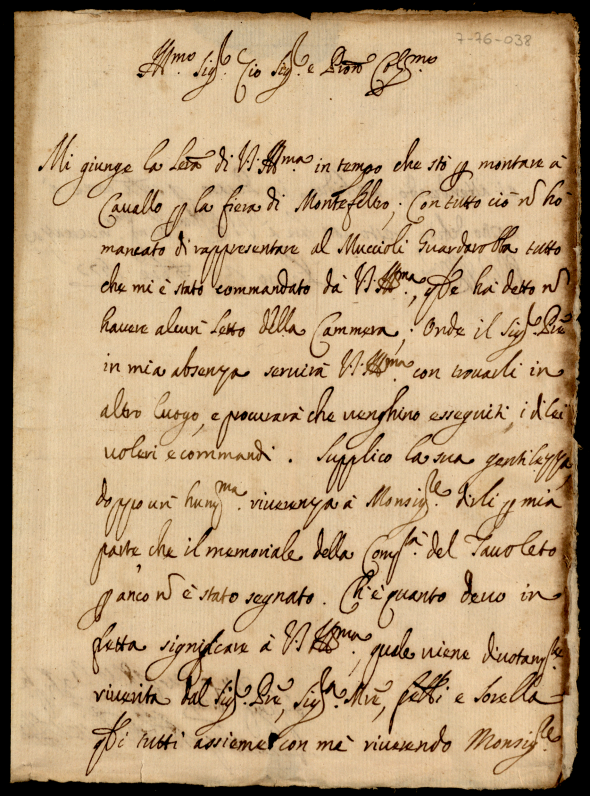 7-76-038
Ill.mo Sig.r Zio Sig.r e Pron Col.mo
Mi giunge la letra di V.S. Ill.ma in tempo che stò p montare à
Cauallo p la fiera di Montefeltro; Con tutto ciò nō hò
mancato di rappresentare al Muccioli Guardarobba tutto
che mi è stato commandato dà V.S. Ill.ma, qle ha detto nō
hauere alcun letto della Cammera; Onde il Sig.r Prē
in mia absenza seruirà V.S. Ill.ma con trouarli in
altro luogo, e procurarà che uenghino esseguiti, i di lei
uoleri e commandi. Supplico la sua gentilezza,
doppo un' hum.ma riuerenza à Monsig.re dirli p mia
parte, che il memoriale della Comp.a del Tauoleto
p anco nō è stato segnato. Ch'è quanto deuo in
fretta significare à V.S. Ill.ma, quale uiene diuotam.te
riuerita dal Sig.r Prē, Sig.ra Mrē, frēlli e sorella
qli tutti assieme con me riuerendo Monsig.re